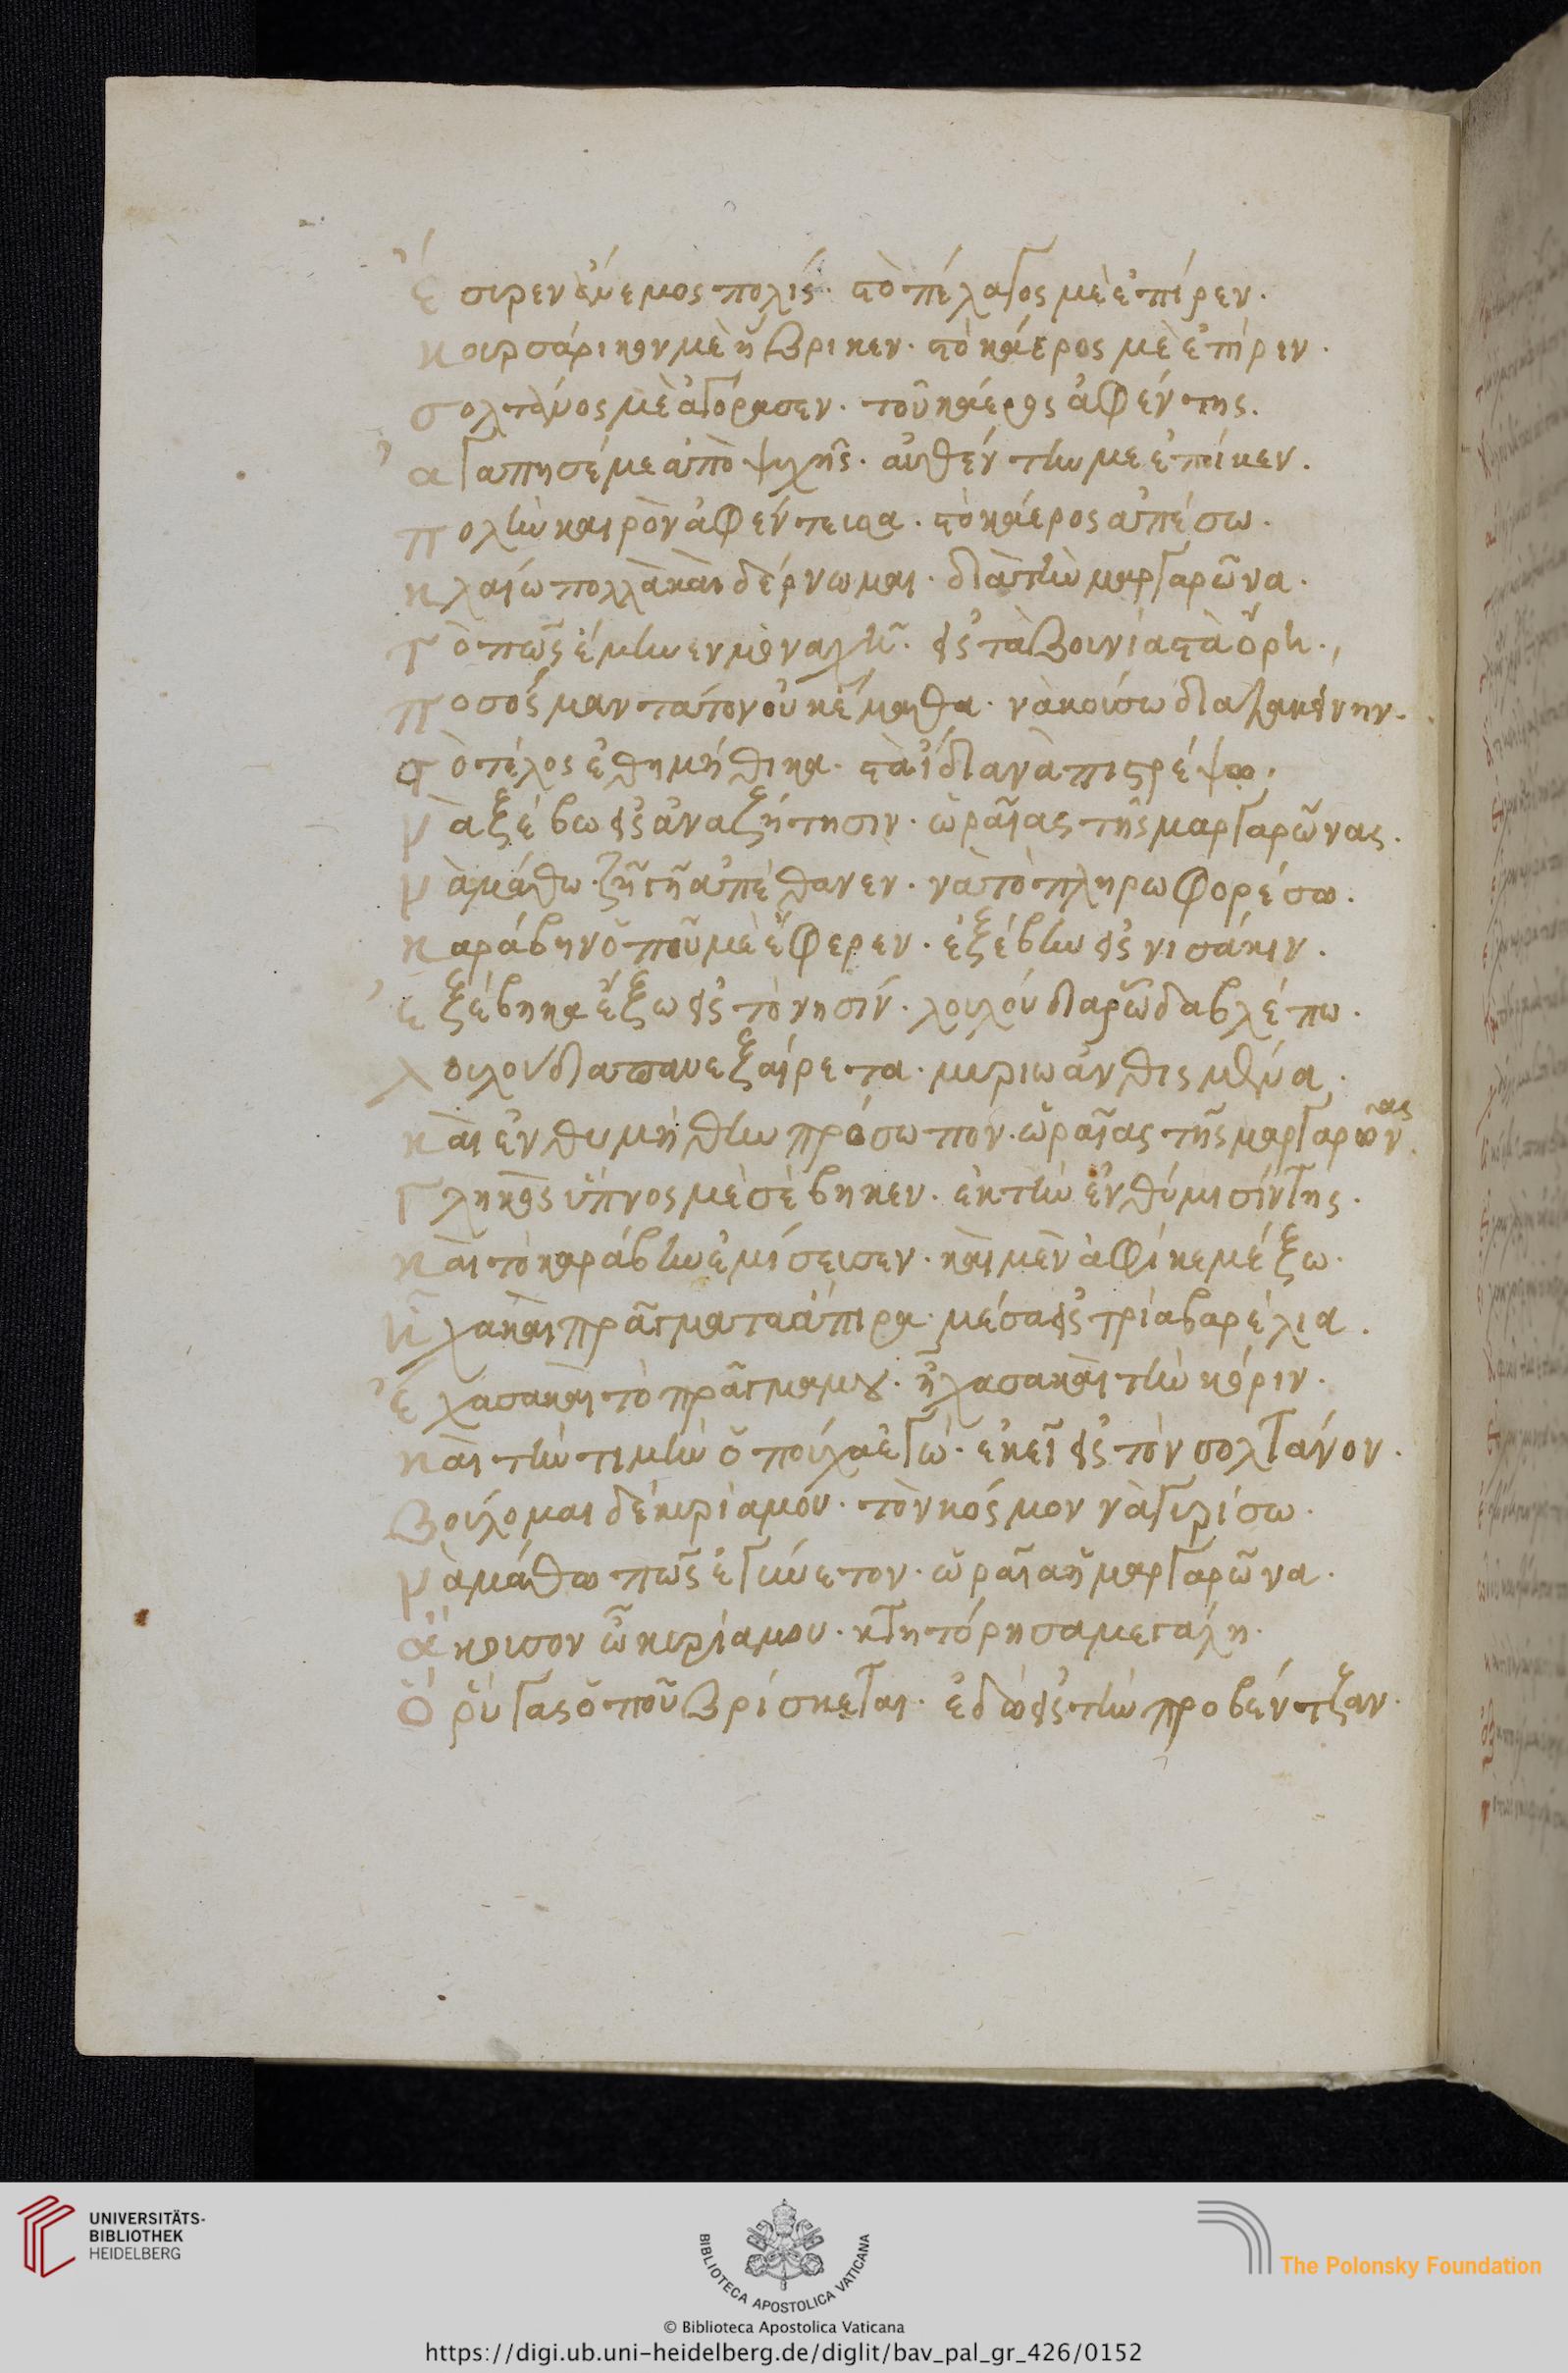 Ἐσυρεν ἄνεμος πολίς· τὸ πέλαγος μὲ ἐπέρεν·
κουρσάρικον μὲ ηὕβρικεν· τὸ κάερος μὲ ἐπήριν·
σολτάνος μὲ ἀγόρασεν· τοῦ καέρος ἀφέντης.
ἀγαπησέ με ἀπὸ ψυχῆς· αὐθέντην με ἐποίκεν.
πολὴν καιρὸν ἀφέντεισα· τὸ κάερος ἀπέσω.
κλαίω πολλὰ καὶ δέρνωμαι· διὰ τὴν μαργαρῶνα.
τὸ πῶς ἔμηνεν μοναχὴ· εἰς τὰ βουνία τὰ ὄρη·
ποσὸς μαντάτον οὐκ ἔμαθα· νὰ κούσω δια κείνην·
τὸ τέλος ἐθημήθικα· τὰ ἴδια νὰ πιστρέψω·
νὰ ξέβω εἰς ἀναζήτησιν· ὡραίας τῆς μαργαρῶνας.
νὰ μάθω ζῆ γῆ ἀπέθανεν· νὰ τὸ πληρωφορέσω.
καράβην ὁποῦ μὲ ἔφερεν· ἐξέβην εἰς νισάκιν.
ἐξέβηκα ἔξω εἰς τὸ νησίν· λουλούδια ρῶδα βλέπω.
λουλούδια πανεξαίρετα· μυριωάνθις
καὶ ἐνθυμήθην πρόσωπον· ὡραίας τῆς μαργαρώνας.
γληκὸς ὕπνος μὲ σέβηκεν· ἐκ τὴν ἐνθύμισίν της.
καὶ τὸ καράβην ἐμίσεισεν· καὶ μὲν ἀφίκε μέξω·
χα καὶ πράγματα ἄπιρα· μέσα εἰς τρία βαρέλια.
ἔχασα καὶ τὸ πράγμα μου· ἤχασα καὶ τὴν κόριν.
καὶ τὴν τιμὴν ὁποίχα ἐγώ· ἐκεῖ εἰς τὸν σολτάνον.
βούλομαι δὲ κυρία μου· τὸν κόσμον νὰ γυρίσω.
νὰ μάθω πῶς ἐγίνετον· ὡραία ἡ μαργαρῶνα.
ἄκουσον ὦ κυρία μου· κτητόρησα μεγάλη·
ὁ ρύγας ὁποῦ βρίσκεται· ἐδῶ εἰς τὴν προβέντζαν.
UNIVERSITÄTS-
BIBLIOTHEK
HEIDELBERG
BIBLIOTECA APOSTOLICA VATICANA
The Polonsky Foundation
© Biblioteca Apostolica Vaticana
https://digi.ub.uni-heidelberg.de/diglit/bav_pal_gr_426/0152